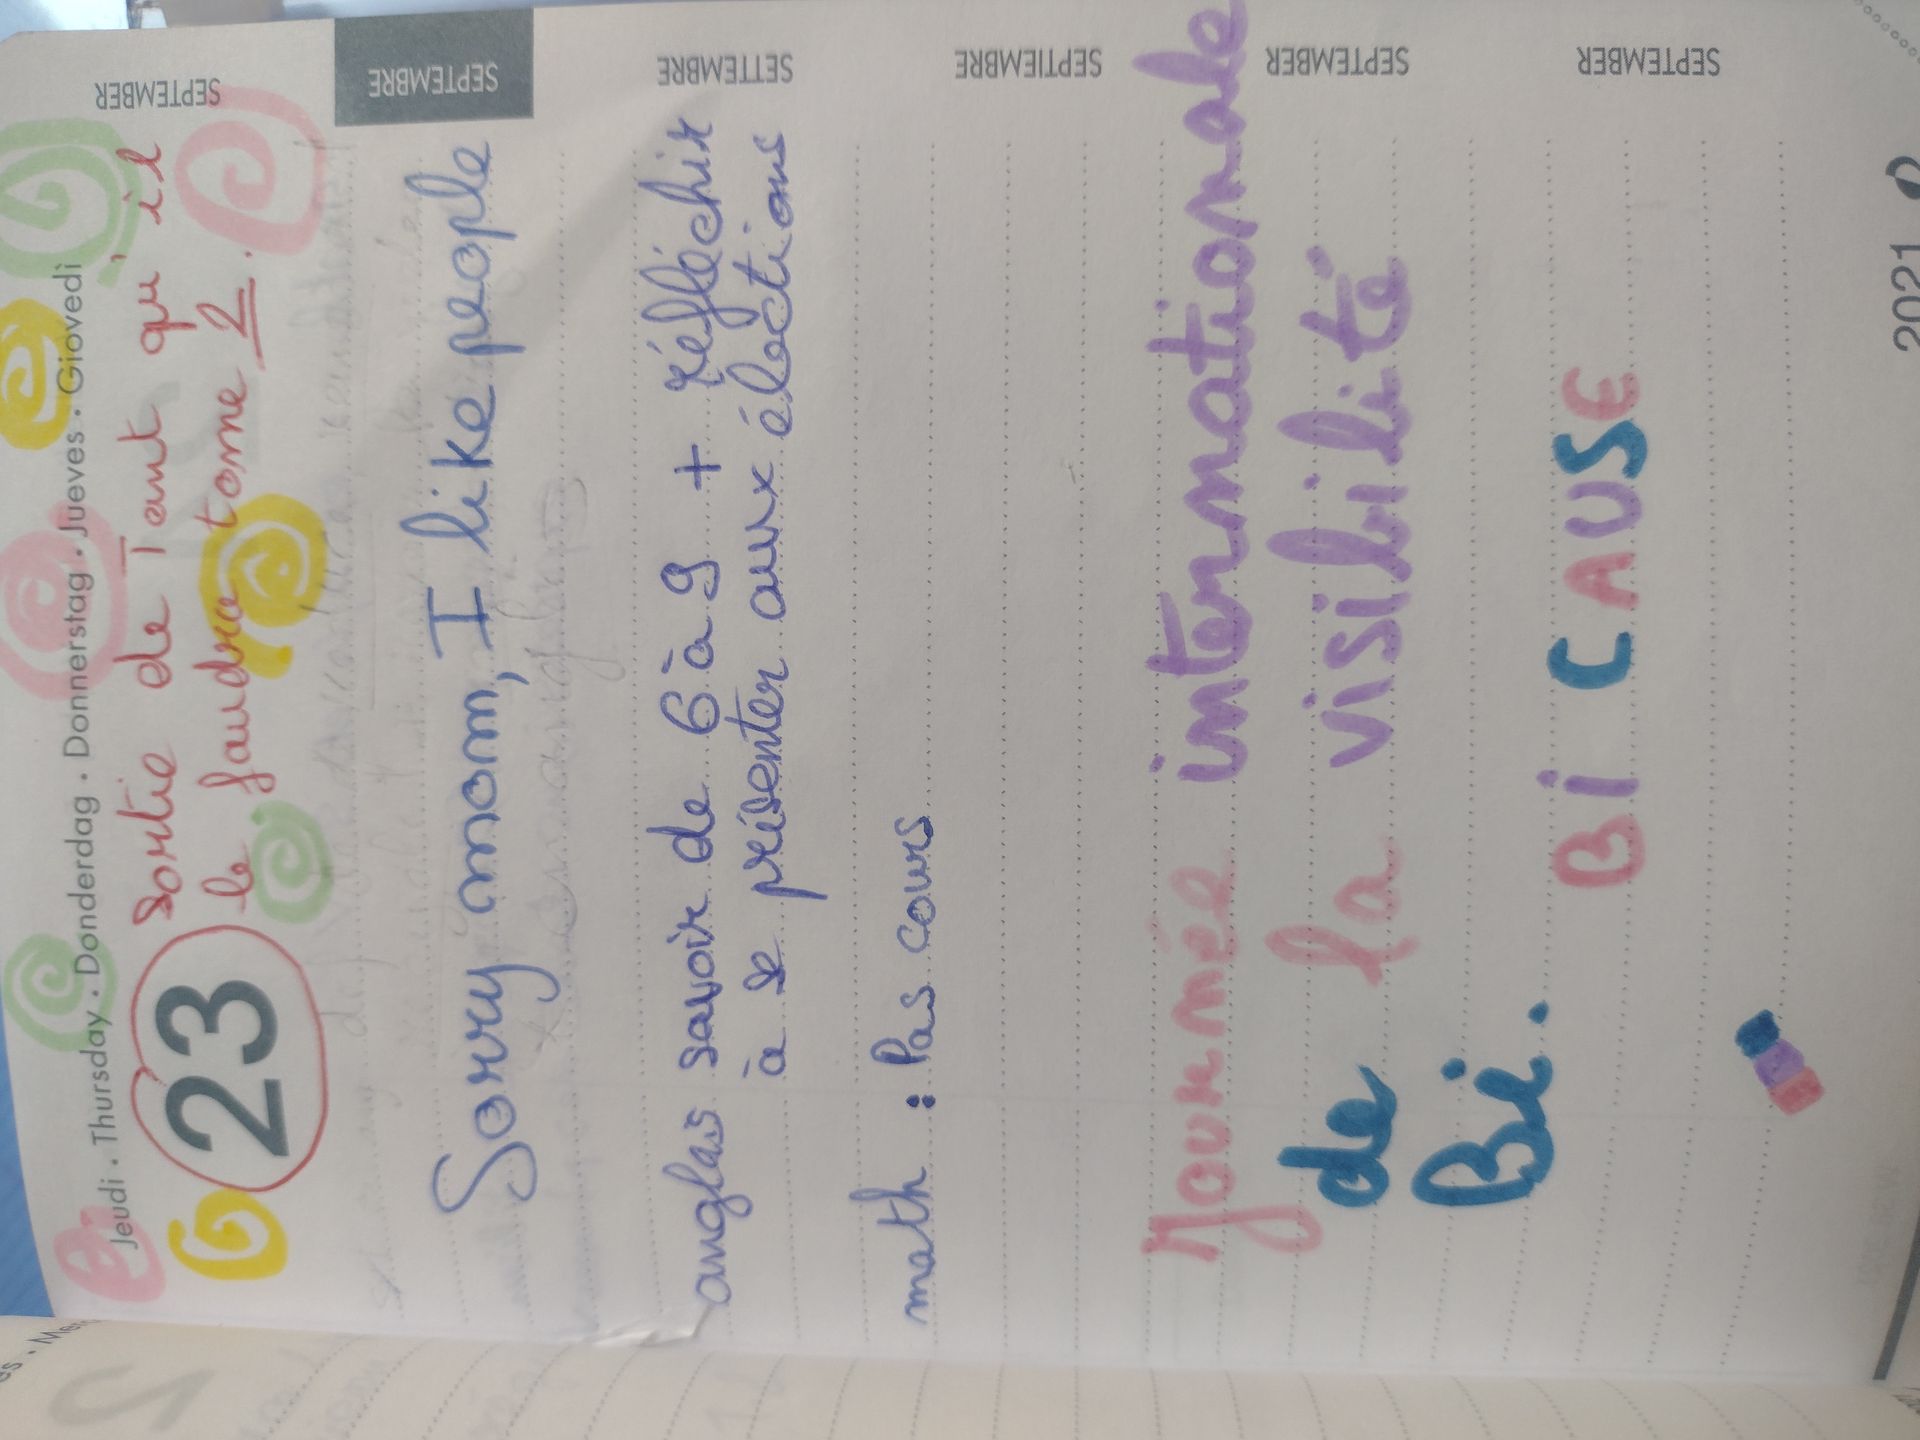 Jeudi • Thursday • Donderdag • Donnerstag • Jueves • Giovedì
23
sortie de Tant qu'il
le faudra tome 2.
Sorry mom, I like people
anglais savoir de 6 à 9 + réfléchir
à se présenter aux élections
math : Pas cours
Journée internationale
de la visibilité
Bi.
BI CAUSE
SEPTEMBER
SEPTEMBRE
SETTEMBRE
SEPTIEMBRE
SEPTEMBER
SEPTEMBER
2021